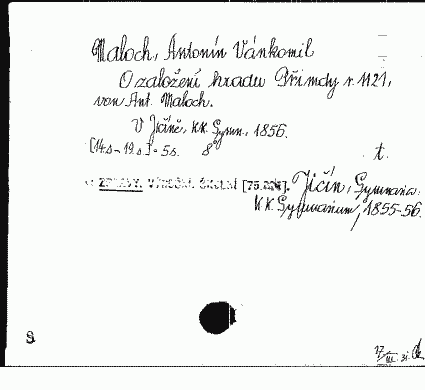 Maloch, Antonín Vánkomil
O založení hradu Přimdy r. 1121,
von Ant. Maloch.
V Jičíně, K.K. Gymn., 1856.
[14s - 19s.] - 5s. 8°
t.
ZPRÁVY. VÝROČNÍ. ŠKOLNÍ Jičín, Gymnasia.
K.K. Gymnasium, 1855-56.
S
17/III. 31.